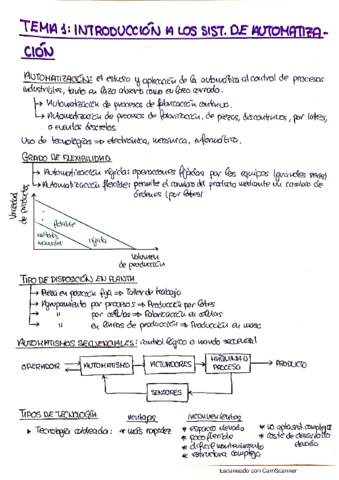 TEMA 1: INTRODUCCIÓN A LOS SIST. DE AUTOMATIZA-
CIÓN
AUTOMATIZACIÓN: el estudio y aplicación de la automática al control de procesos
industriales, tanto en lazo abierto como en lazo cerrado.
↳ Automatización de procesos de fabricación continua.
↳ Automatización de procesos de fabricación, de piezas, discontinuos, por lotes,
o eventos discretos.
Uso de tecnologías ⇒ electrónica, mecánica, informática.
GRADO DE FLEXIBILIDAD
↳ Automatización rígida: operaciones fijadas por los equipos (grandes series)
↳ Automatización flexible: permite el cambio de producto mediante un cambio de
órdenes (por lotes)
Variedad
de productos
flexible
métodos
manuales
rígida
Volumen
de producción
TIPO DE DISPOSICIÓN EN PLANTA
↳ Pieza en posición fija ⇒ Taller de trabajo
↳ Agrupamiento por procesos ⇒ Producción por lotes
↳ " por células ⇒ Fabricación en células
↳ " en líneas de producción ⇒ Producción en masa
AUTOMATISMOS SECUENCIALES: control lógico o mando secuencial
OPERADOR → AUTOMATISMO → ACTUADORES → MÁQUINA O PROCESO → PRODUCTO
SENSORES
TIPOS DE TECNOLOGÍA ventajas inconvenientes
↳ Tecnología cableada: * más rapidez * espacio elevado * no aplicaciones complejas
* poco flexible * coste de desarrollo elevado
* difícil mantenimiento
* estructura compleja
Escaneado con CamScanner